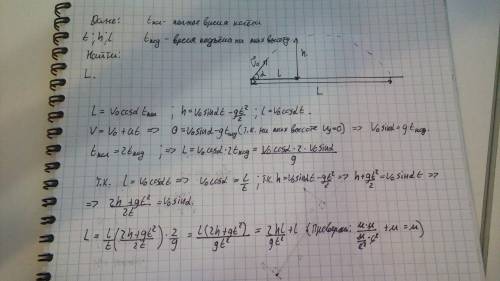 Дано: tпол - полное время полёта
t; h; l tпод - время подъёма на max высоту
Найти:
L.
V₀ α l h L
L = V₀cosα tпол ; h = V₀sinαt - gt²/2 ; l = V₀cosαt .
V = V₀ + at => 0 = V₀sinα - gtпод (т.к. на max высоте Vy=0) => V₀sinα = gtпод.
tпол = 2tпод ; => L = V₀cosα · 2tпод = V₀cosα · 2 · V₀sinα / g
Т.к. l = V₀cosαt => V₀cosα = l/t ; т.к. h = V₀sinαt - gt²/2 => h + gt²/2 = V₀sinαt =>
=> 2h + gt² / 2t = V₀sinα.
L = l/t (2h + gt² / 2t) · 2/g = l(2h + gt²) / gt² = 2hl / gt² + l (Проверим: м·м / м/с² · с² + м = м)